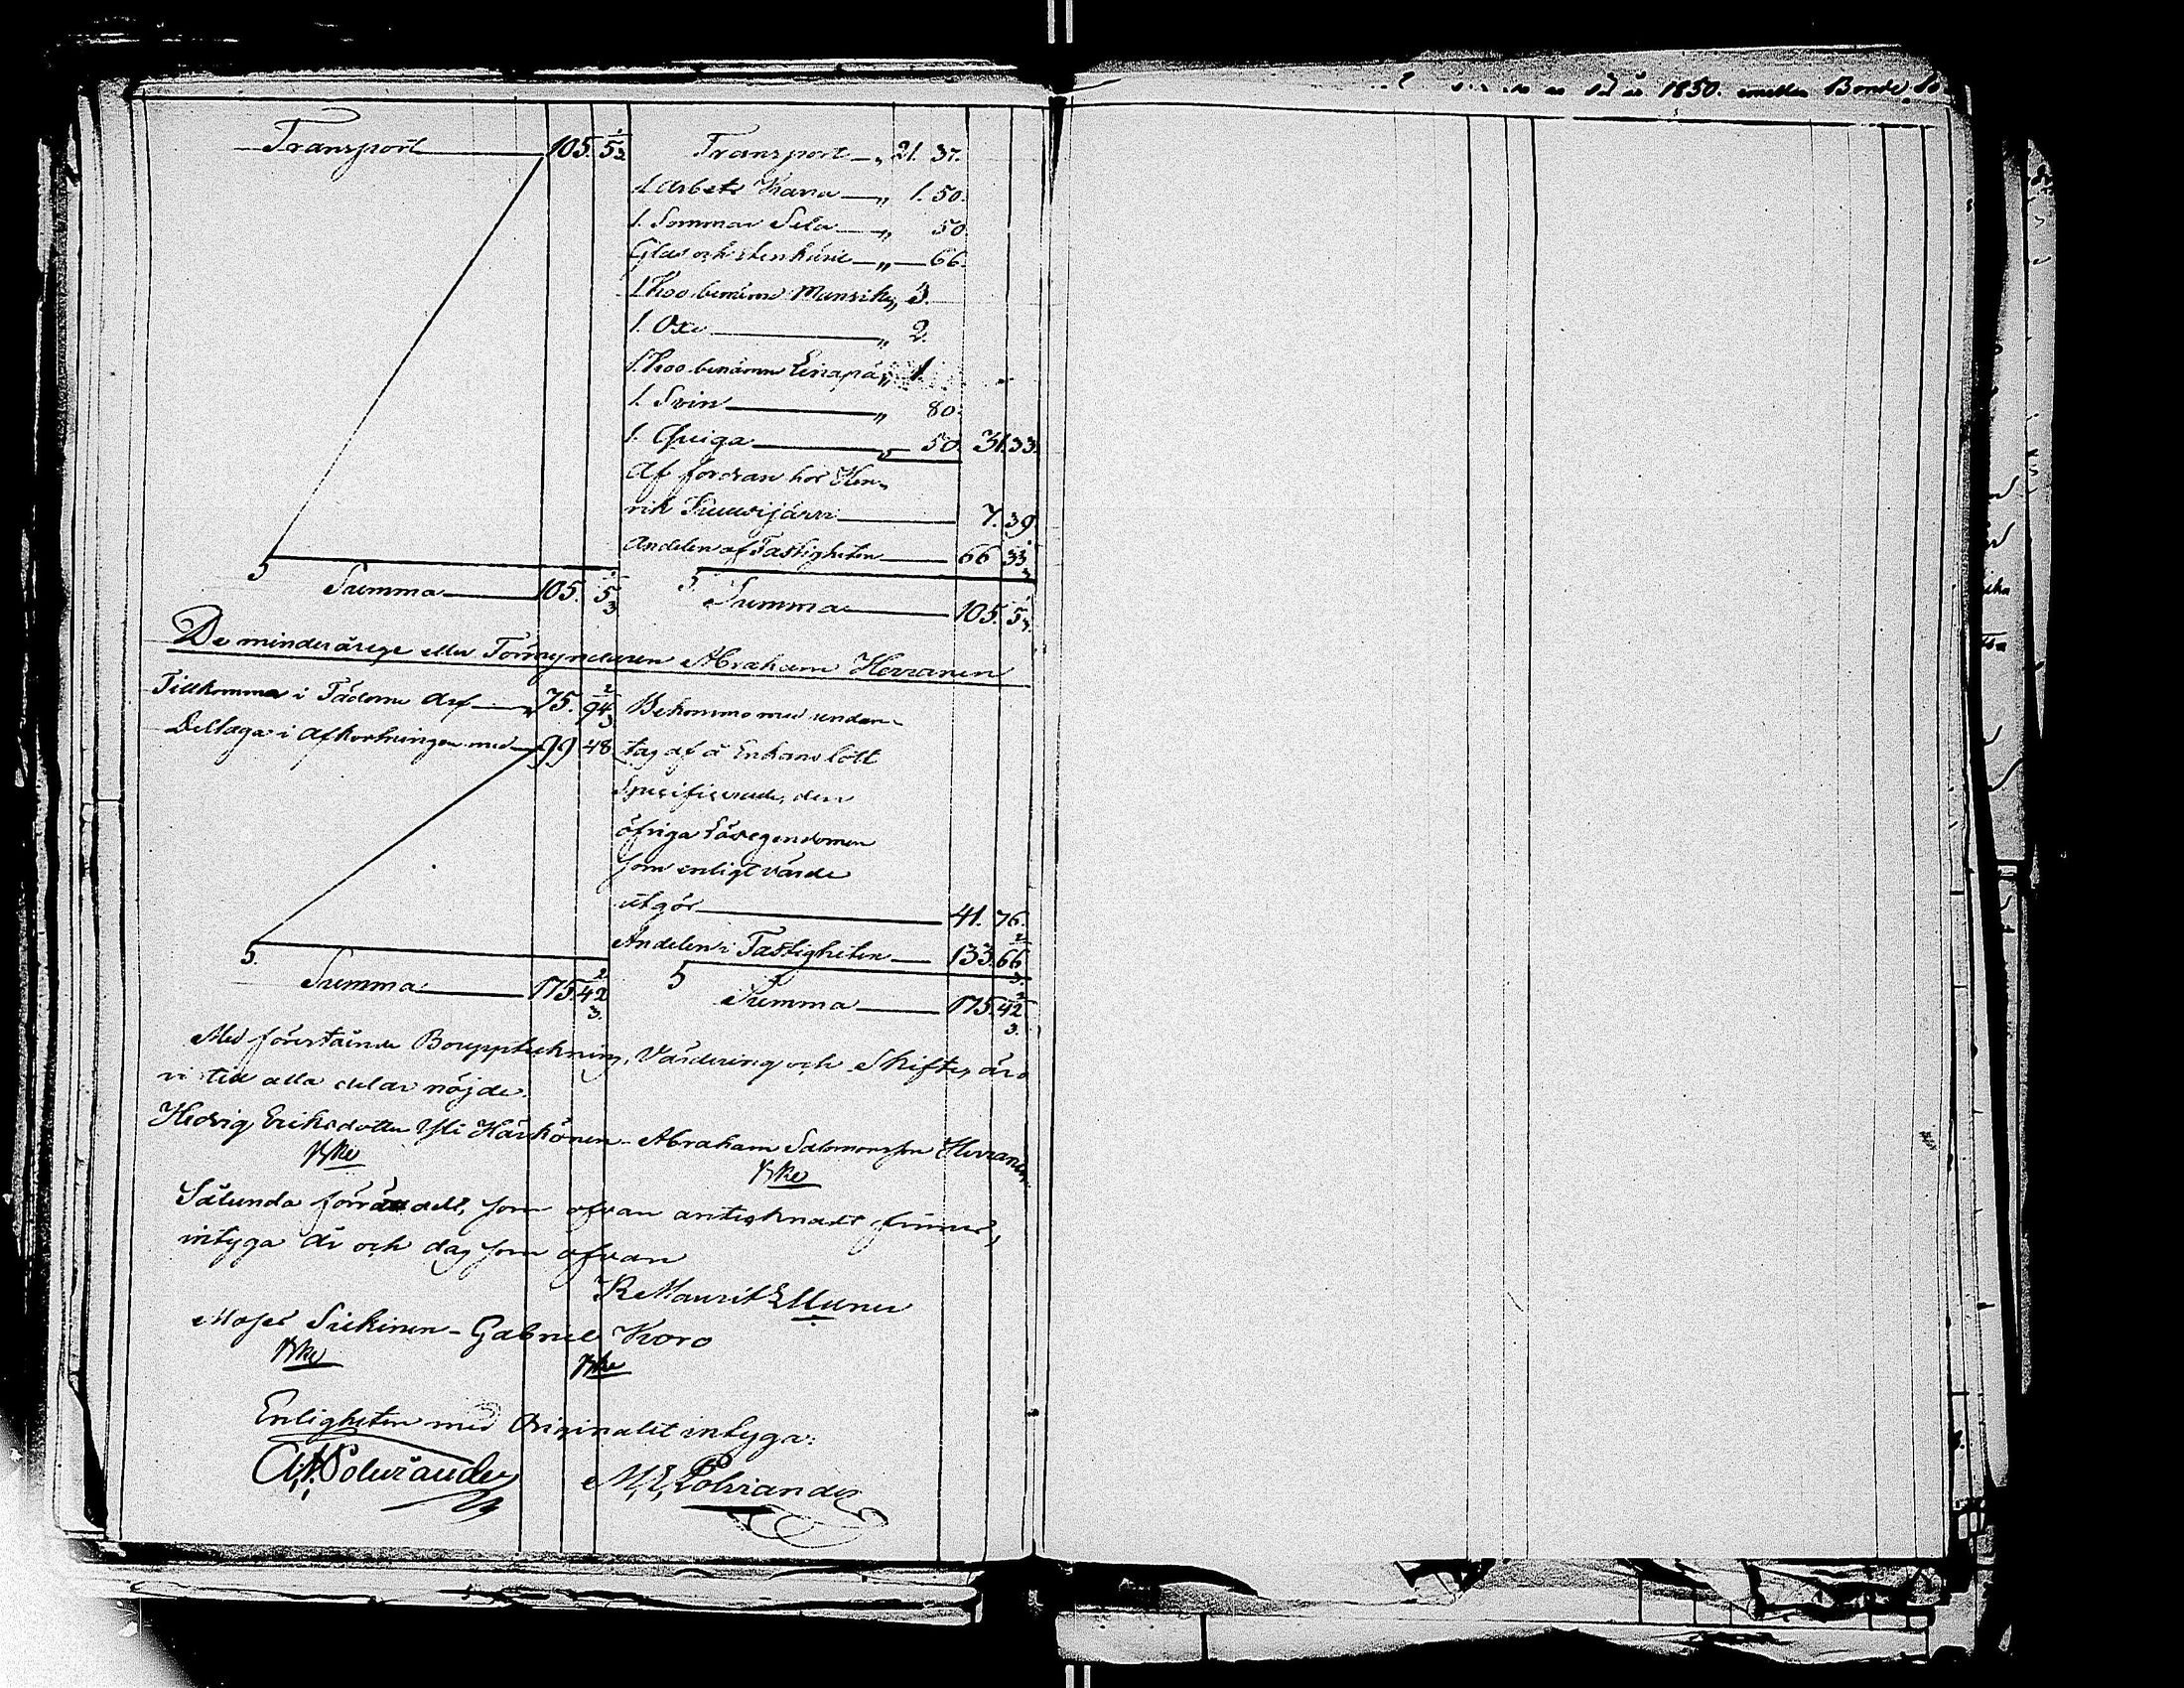 Transport 105. 5 1/3
Transport " 21. 37.
1. Arbets Kärra " 1. 50.
1. Sommar Sela " 50.
Glas och stenkäril " 66.
1 Koo benämd Mansik " 3.
1. Oxe " 2.
1. Koo benämn Einapä " 1.
1. Svin " 80.
1. Qviga 50. 31. 33.
Af fordran hos Hen-
rik Suuwijärvi 7. 39
Andelen af Fastigheten 66 33 1/3
Summa 105. 5 1/3
Summa 105. 5 1/3.
De minderårige eller Förmyndaren Abraham Herranen
Tillkomma i Fäderne Arf 75. 94 2/3
Deltaga i afkortningen med 99 48
Bekomma med undan-
tag af å Enkans lott
Specificerade, den
öfriga Lösegendomen
som enligt värde
utgör 41. 76.
Andelen i Fastigheten 133. 66 2/3.
Summa 175. 42 2/3.
Summa 175. 42 2/3.
Med förestående Bouppteckning, Värdering och Skifte, äro
vi till alla delar nöjde.
Hedvig Eriksdotter Yli Härkönen - Abraham Salomonsson Herranen
Sålunda förrättadt, som ofvan antecknadt finnes,
intyga år och dag som ofvan
R Maurit Ellmen
Moses Siekinen - Gabriel Koro
Enligheten med Originalet intyga:
A. H. Polviander
M. E. Polviander
1850. emellan Bonde